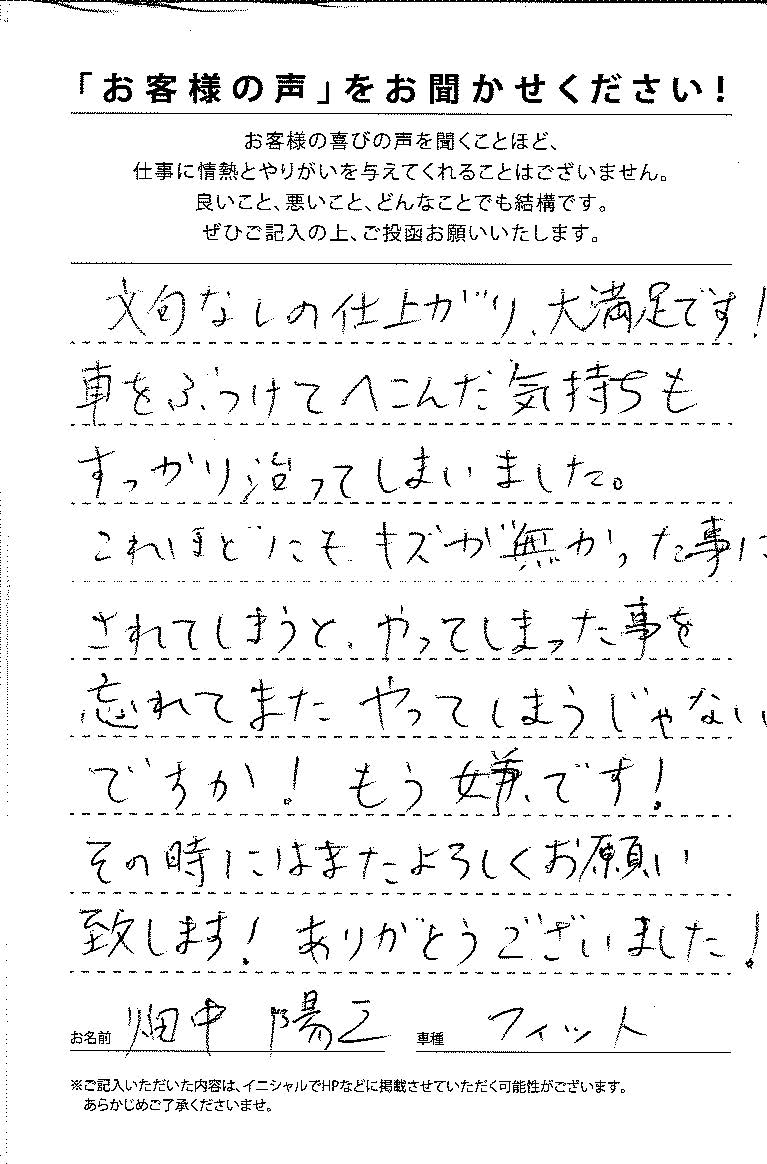 「お客様の声」をお聞かせください！
お客様の喜びの声を聞くことほど、
仕事に情熱とやりがいを与えてくれることはございません。
良いこと、悪いこと、どんなことでも結構です。
ぜひご記入の上、ご投函お願いいたします。
文句なしの仕上がり、大満足です！
車をぶつけてへこんだ気持ちも
すっかり治ってしまいました。
これほどにも キズが無かった事に
されてしまうと、やってしまった事を
忘れてまた やってしまうじゃない
ですか！ もう嫌です！
その時にはまたよろしくお願い
致します！ ありがとうございました！
お名前 畑中 陽 車種 フィット
※ご記入いただいた内容は、イニシャルでHPなどに掲載させていただく可能性がございます。
あらかじめご了承くださいませ。